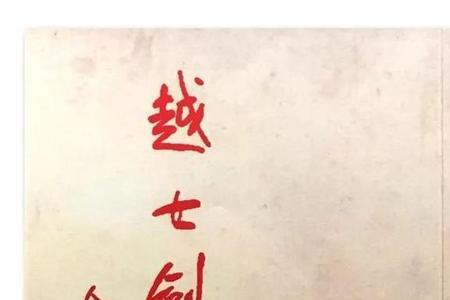 越女剑